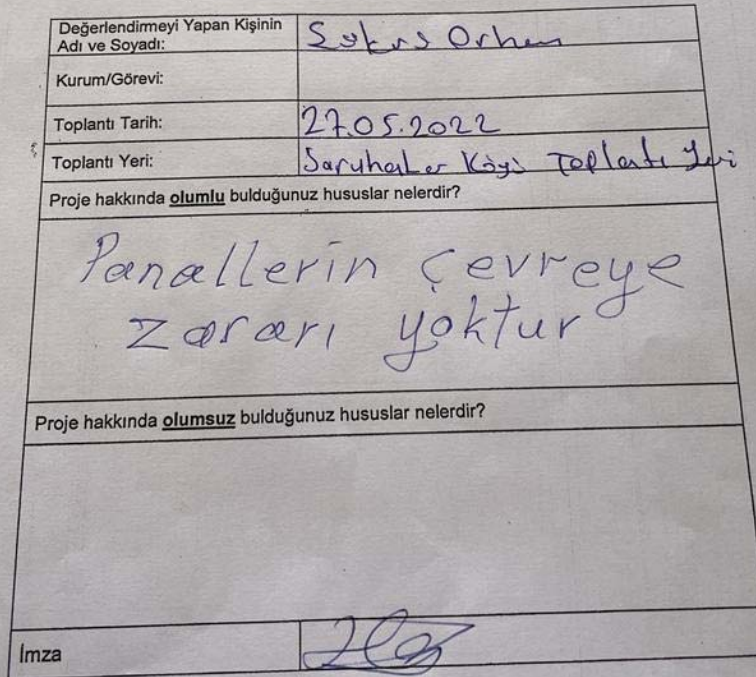 Değerlendirmeyi Yapan Kişinin
Adı ve Soyadı:
Orhan
Kurum/Görevi:
Toplantı Tarih:
27.05.2022
Toplantı Yeri:
Köyü Toplantı Yeri
Proje hakkında olumlu bulduğunuz hususlar nelerdir?
Panallerin çevreye
zararı yoktur
Proje hakkında olumsuz bulduğunuz hususlar nelerdir?
İmza